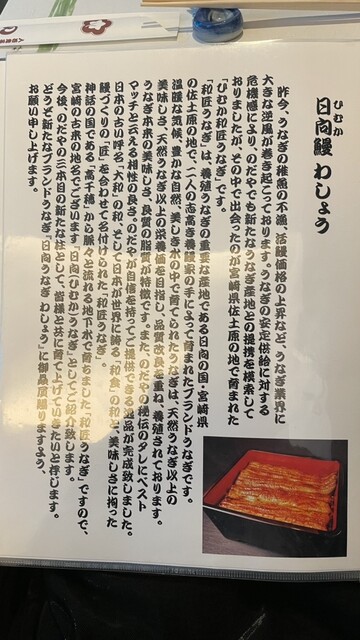 日向鰻 わしょう
ひむか
昨今、うなぎの稚魚の不漁、活鰻価格の上昇など、うなぎ業界に
大きな逆風が巻き起こっております。うなぎの安定供給に対する
危機感により、のだやでも新たなうなぎ産地との提携を模索して
おりましたが、その中で出会ったのが宮崎県佐土原の地で育まれた
「ひむか和匠うなぎ」です。
「和匠うなぎ」は、養殖うなぎの重要な産地である日向の国・宮崎県
の佐土原の地で、二人の志高き養鰻家の手によって育まれたブランドうなぎです。
温暖な気候、豊かな自然、美しき水の中で育てられたうなぎは、天然うなぎ以上の
美味しさ、天然うなぎ以上の栄養価を目指し、品質改良を重ね、養殖されております。
うなぎ本来の美味しさ、良質の脂質が特徴です。また、のだやの秘伝のタレにベスト
マッチと云える相性の良さ。のだやが自信を持ってご提供できる逸品が完成致しました。
日本の古い呼名、「大和」の「和」、そして日本が世界に誇る「和食」の「和」と、美味しさに拘った
鰻づくりの「匠」を合わせて名付けられた「和匠うなぎ」。
神話の国である「高千穂」から脈々と流れる地下水で育ちました「和匠うなぎ」ですので、
宮崎の古来の地名でございます「日向（ひむか）うなぎ」としてご紹介致します。
今後、のだやの三本目の新たな柱として、皆様と共に育て上げていきたいと存じます。
どうぞ新たなブランドうなぎ「日向うなぎ わしょう」に御贔屓賜りますよう、
お願い申し上げます。